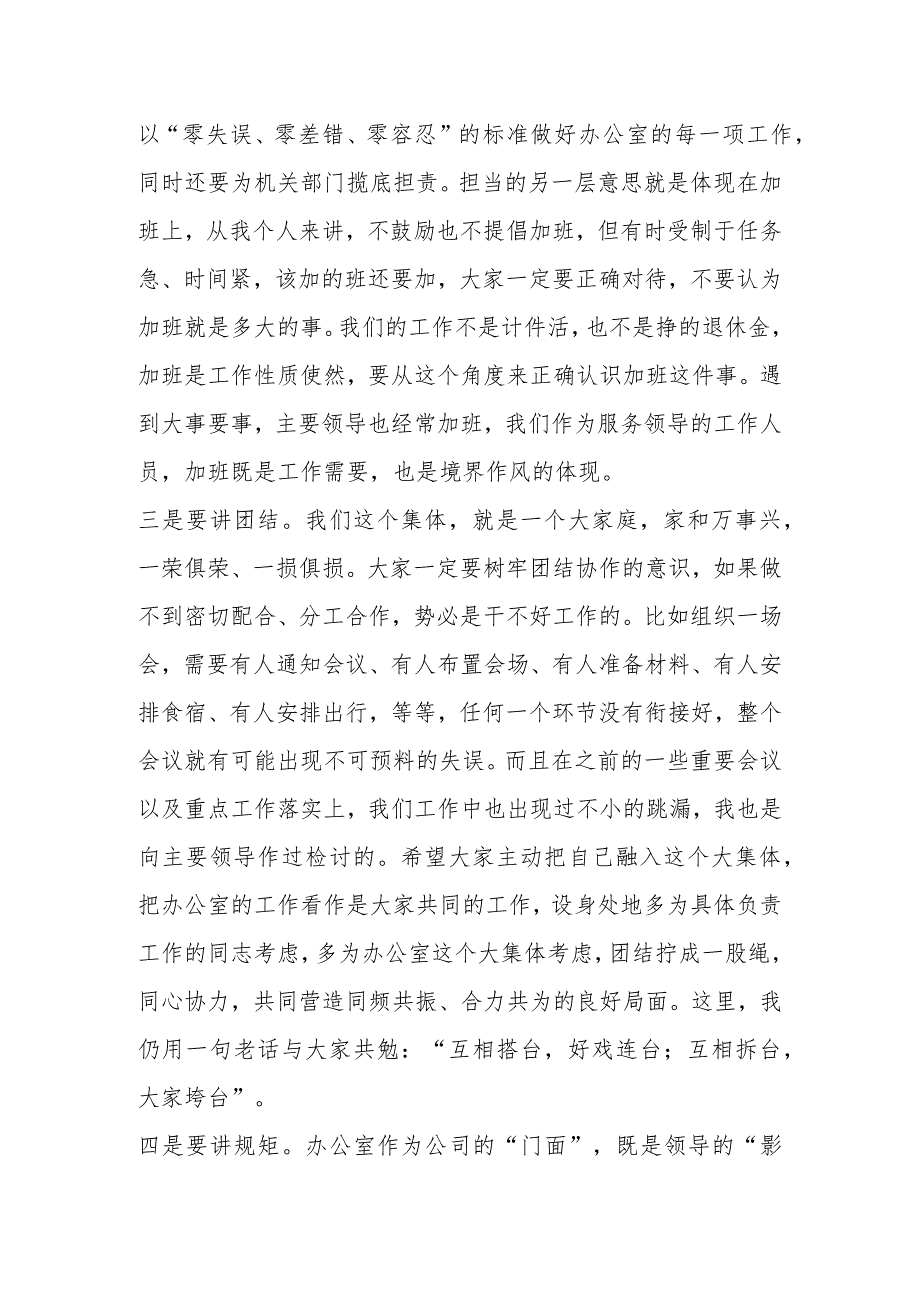 以“零失误、零差错、零容忍”的标准做好办公室的每一项工作，
同时还要为机关部门揽底担责。担当的另一层意思就是体现在加
班上，从我个人来讲，不鼓励也不提倡加班，但有时受制于任务
急、时间紧，该加的班还要加，大家一定要正确对待，不要认为
加班就是多大的事。我们的工作不是计件活，也不是挣的退休金，
加班是工作性质使然，要从这个角度来正确认识加班这件事。遇
到大事要事，主要领导也经常加班，我们作为服务领导的工作人
员，加班既是工作需要，也是境界作风的体现。
三是要讲团结。我们这个集体，就是一个大家庭，家和万事兴，
一荣俱荣、一损俱损。大家一定要树牢团结协作的意识，如果做
不到密切配合、分工合作，势必是干不好工作的。比如组织一场
会，需要有人通知会议、有人布置会场、有人准备材料、有人安
排食宿、有人安排出行，等等，任何一个环节没有衔接好，整个
会议就有可能出现不可预料的失误。而且在之前的一些重要会议
以及重点工作落实上，我们工作中也出现过不小的跳漏，我也是
向主要领导作过检讨的。希望大家主动把自己融入这个大集体，
把办公室的工作看作是大家共同的工作，设身处地多为具体负责
工作的同志考虑，多为办公室这个大集体考虑，团结拧成一股绳，
同心协力，共同营造同频共振、合力共为的良好局面。这里，我
仍用一句老话与大家共勉：“互相搭台，好戏连台；互相拆台，
大家垮台”。
四是要讲规矩。办公室作为公司的“门面”，既是领导的“影